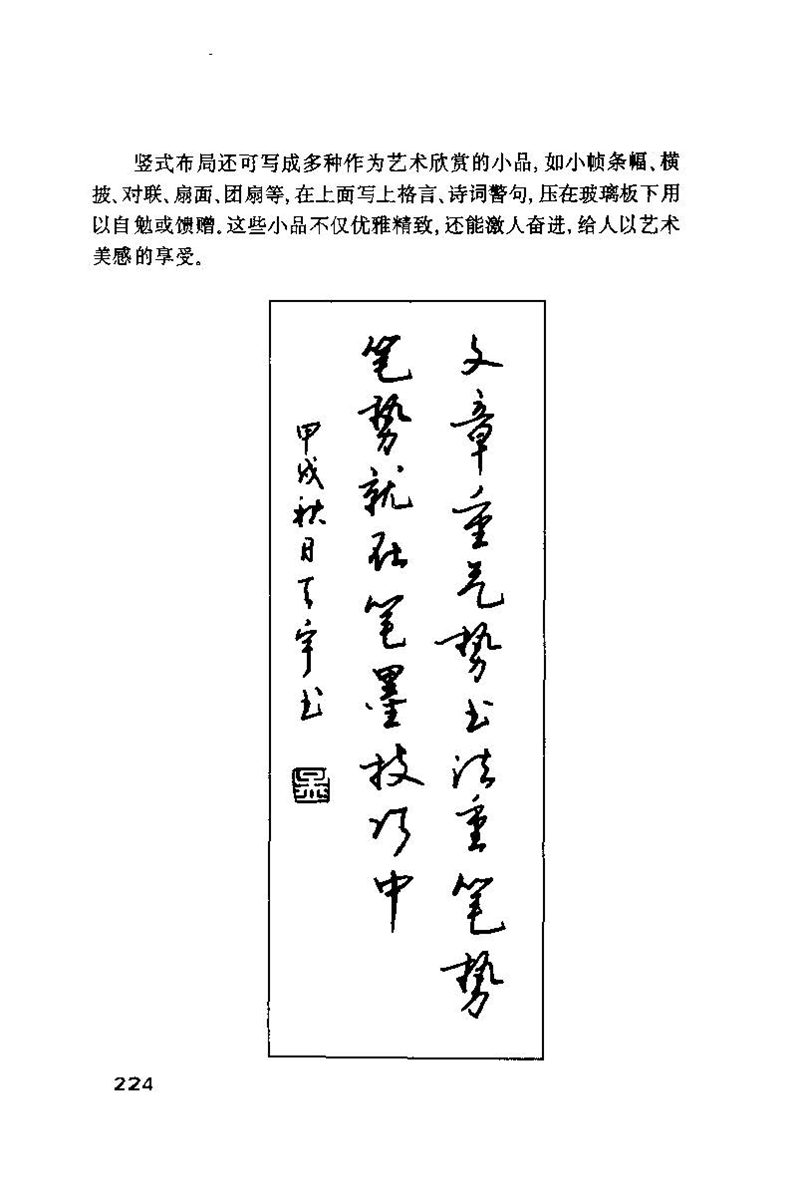 竖式布局还可写成多种作为艺术欣赏的小品,如小帧条幅、横
披、对联、扇面、团扇等,在上面写上格言、诗词警句,压在玻璃板下用
以自勉或馈赠。这些小品不仅优雅精致,还能激人奋进,给人以艺术
美感的享受。
文章重气势书法重笔势
笔势就在笔墨技巧中
甲戌秋日丁宇书
224